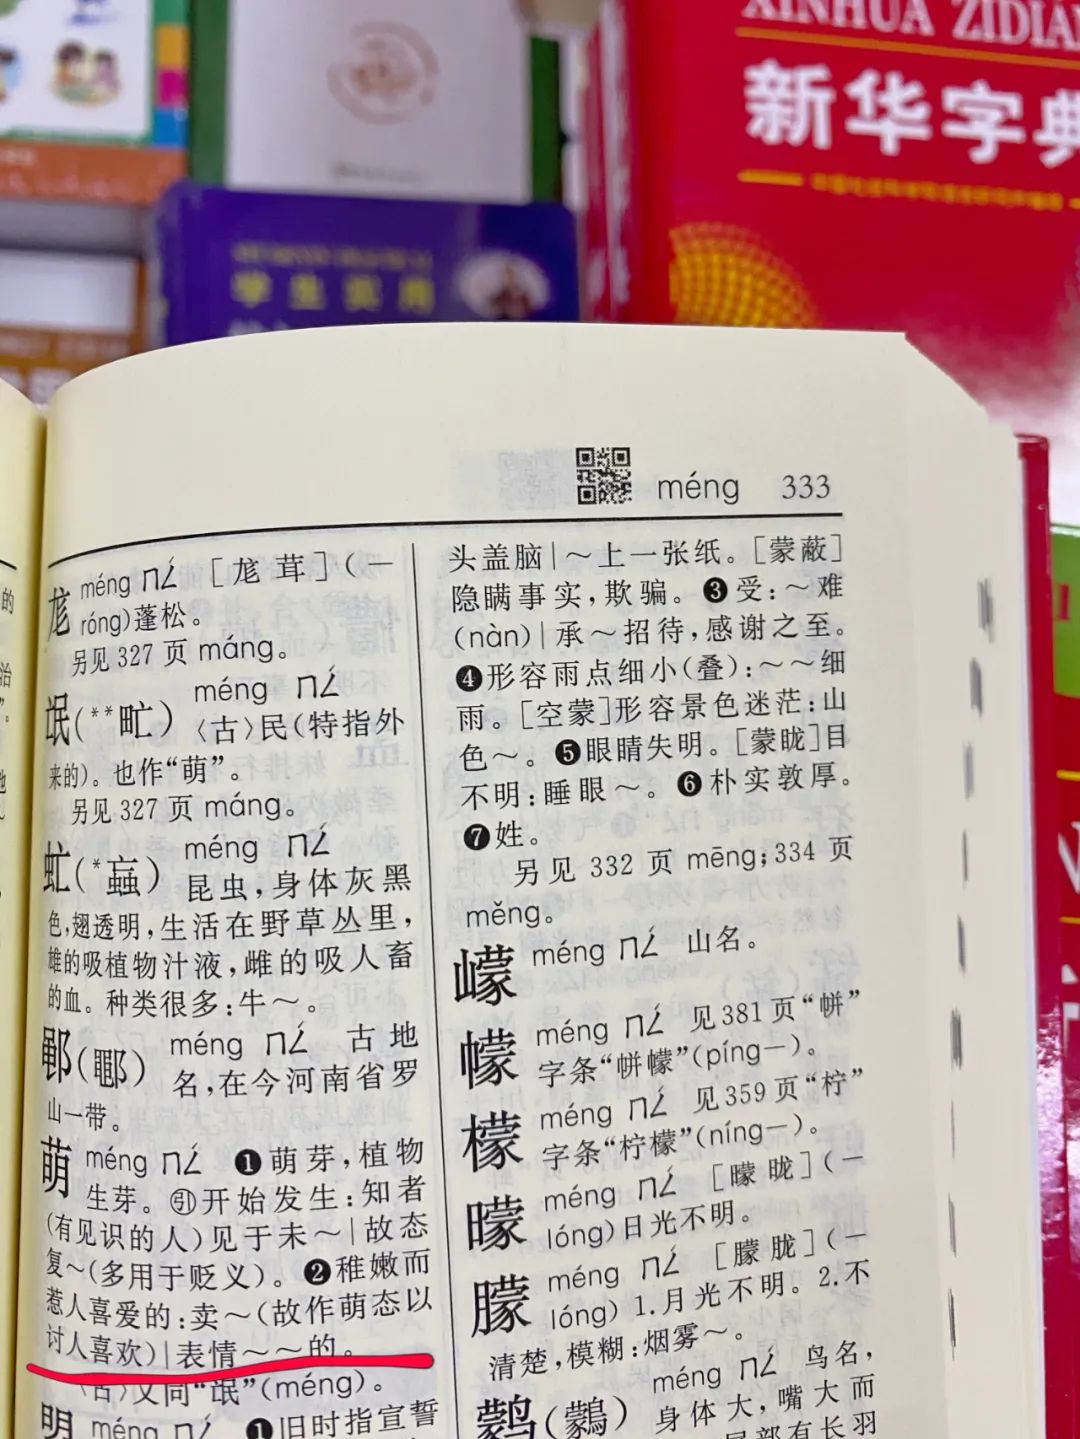 XINHUA ZIDIAN
新华字典
学生实用
méng 333
尨 méng ㄇㄥˊ [尨茸](一
róng)蓬松。
另见327页 máng。
氓(**甿) méng ㄇㄥˊ
〈古〉民(特指外
来的)。也作“萌”。
另见327页 máng。
虻(*蝱) méng ㄇㄥˊ
昆虫,身体灰黑
色,翅透明,生活在野草丛里,
雄的吸植物汁液,雌的吸人畜
的血。种类很多:牛～。
鄳(鄳) méng ㄇㄥˊ 古地
名,在今河南省罗
山一带。
萌 méng ㄇㄥˊ ❶萌芽,植物
生芽。㊟开始发生:知者
(有见识的人)见于未～|故态
复～(多用于贬义)。❷稚嫩而
惹人喜爱的:卖～(故作萌态以
讨人喜欢)|表情～～的。
〈古〉又同“氓”(méng)。
明 méng ㄇㄥˊ ❶旧时指宣誓
头盖脑|～上一张纸。[蒙蔽]
隐瞒事实,欺骗。❸受:～难
(nàn)|承～招待,感谢之至。
❹形容雨点细小(叠):～～细
雨。[空蒙]形容景色迷茫:山
色～。❺眼睛失明。[蒙眬]目
不明:睡眼～。❻朴实敦厚。
❼姓。
另见 332 页 mēng;334 页
měng。
嶸 méng ㄇㄥˊ 山名。
幪 méng ㄇㄥˊ 见381页“帡”
字条“帡幪”(píng一)。
檬 méng ㄇㄥˊ 见359页“柠”
字条“柠檬”(níng一)。
曚 méng ㄇㄥˊ [曚昽](一
lóng)日光不明。
朦 méng ㄇㄥˊ [朦胧](一
lóng) 1.月光不明。2.不
清楚,模糊:烟雾～。
鹲(鸏) méng ㄇㄥˊ 鸟名,
身体大,嘴大而